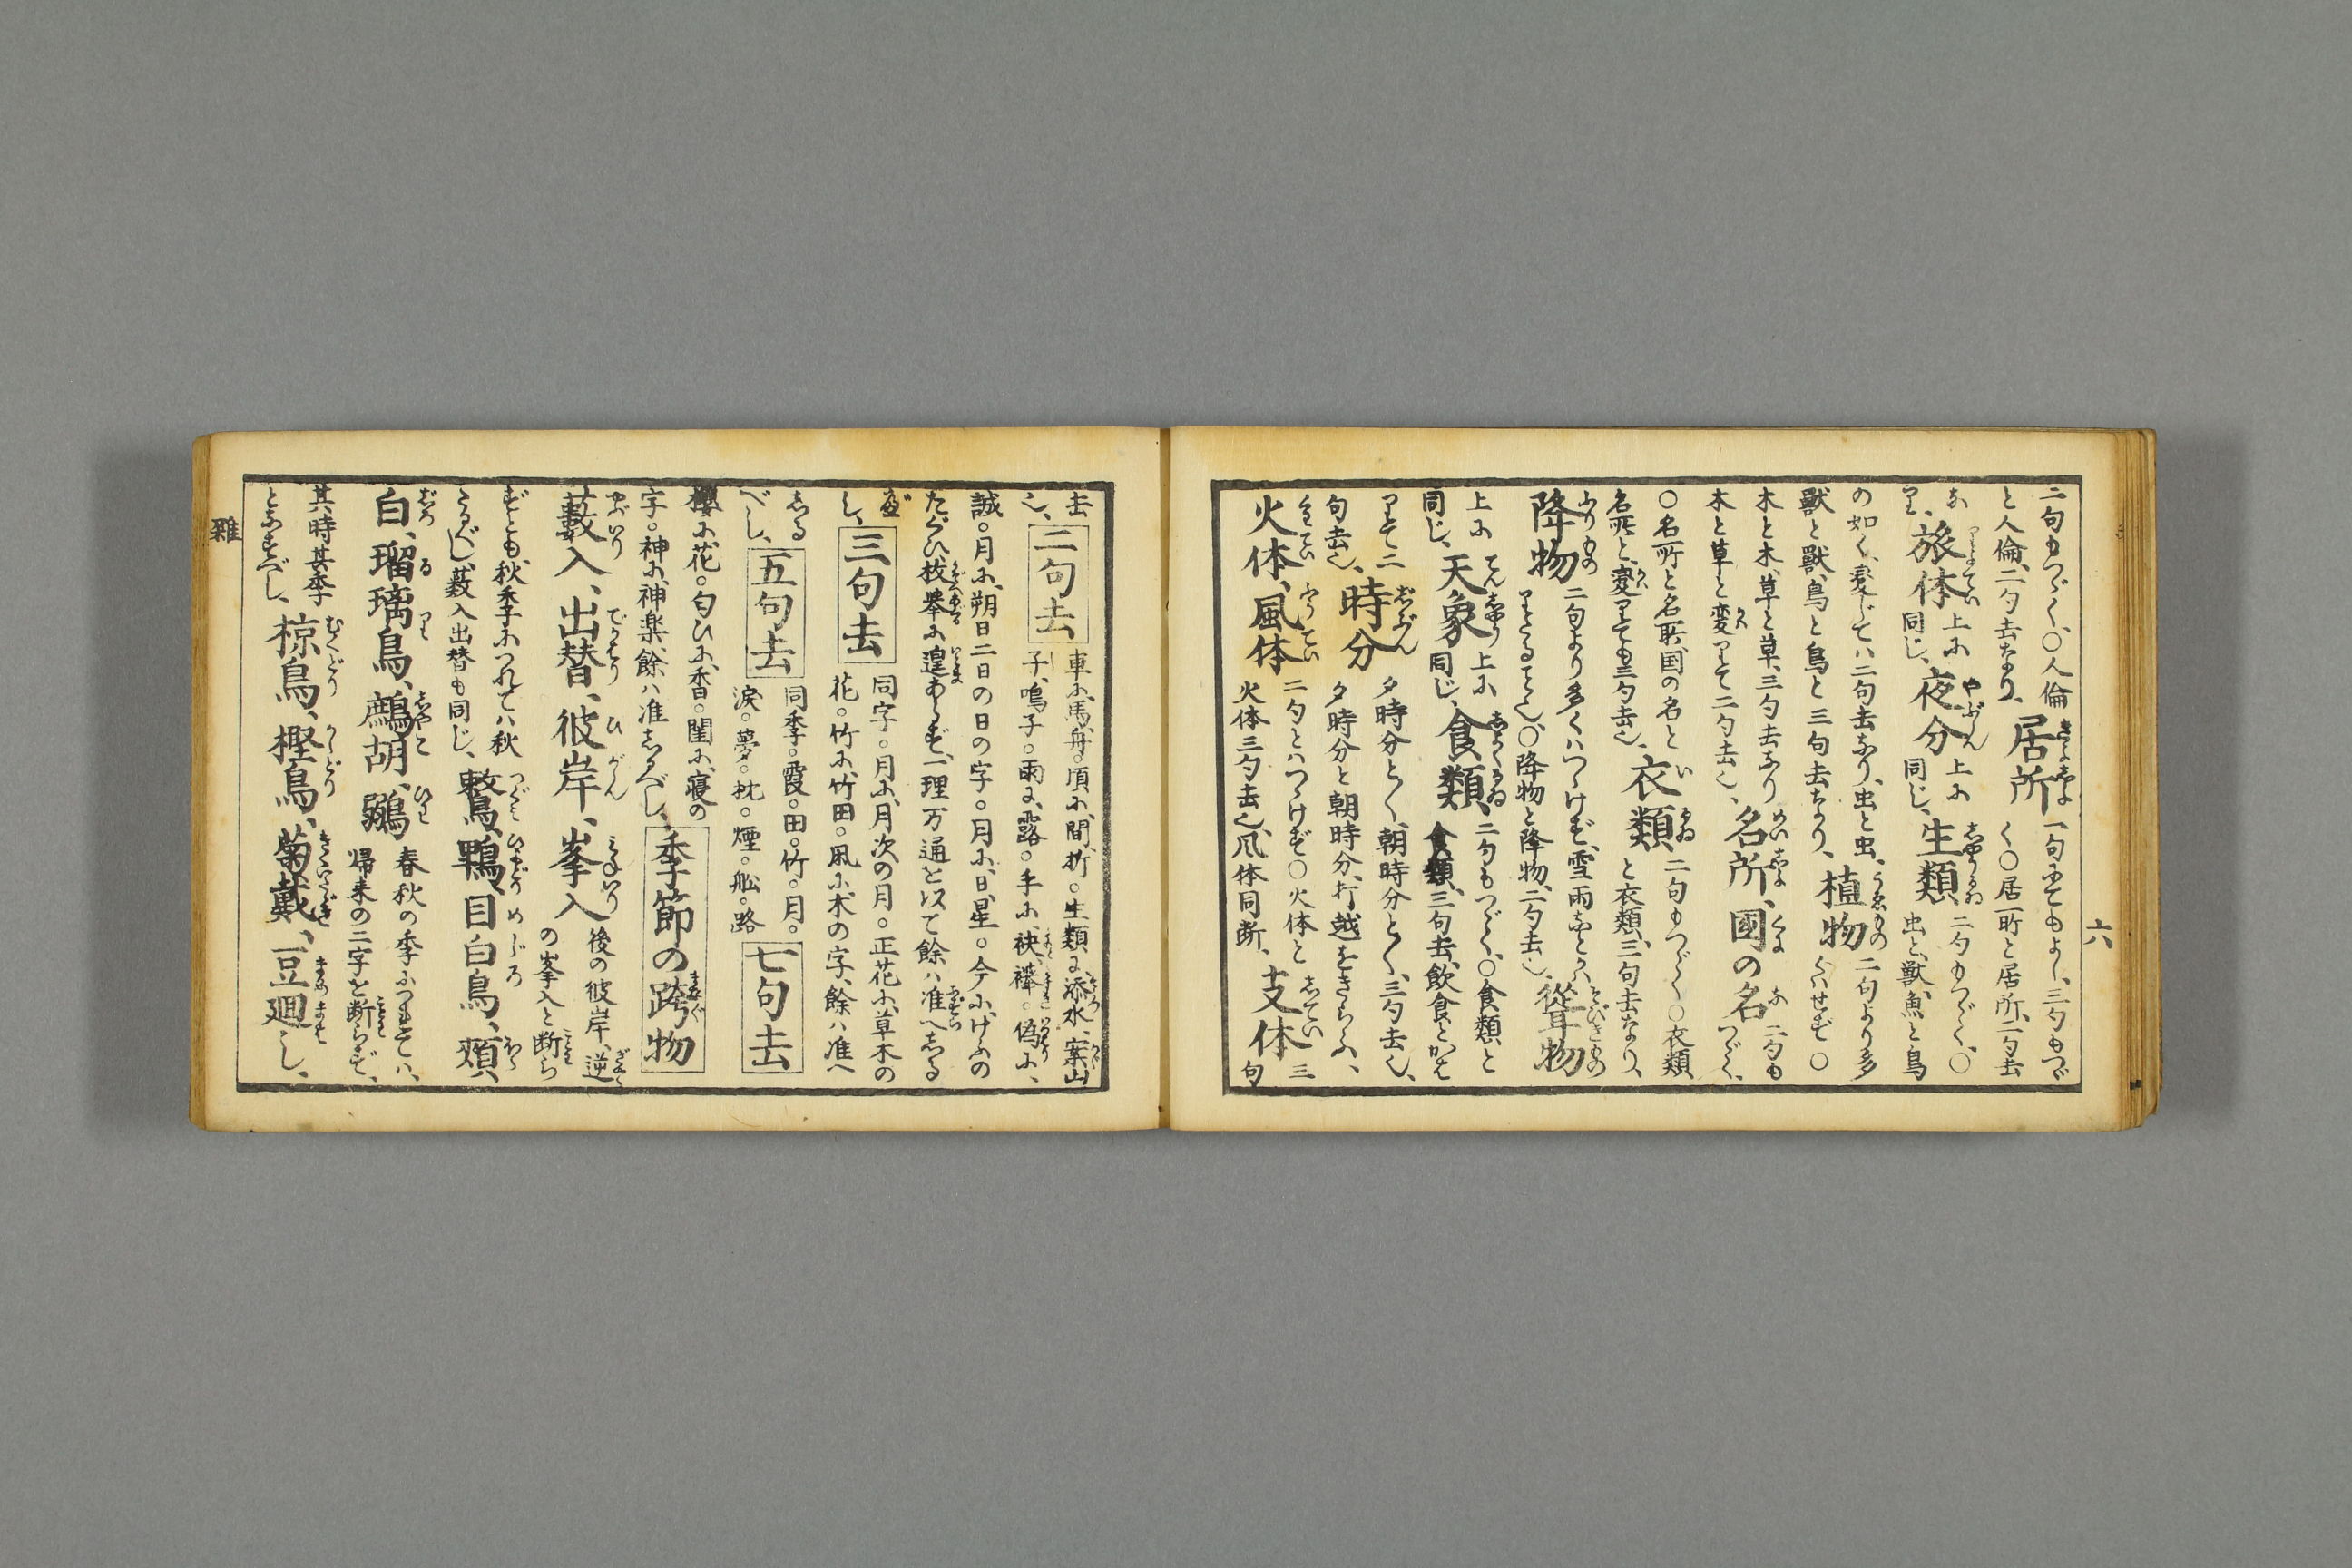 六
二句もつゞく、○人倫
と人倫、二句去なり、
居所
一句にてもよし、三句もつゞ
く○居所と居所、二句去
なり、
旅体
上に同じ、
夜分
上に同じ、
生類
二句もつゞく、○
虫と、獣、魚と鳥
の如く、変じてハ二句去なり、虫と虫、
獣と獣、鳥と鳥と三句去なり、
植物
二句より多くハせず○
木と木、草と草、三句去なり
木と草と変りて二句去也、
名所、國の名
二句もつゞく、
○名所と名所、国の名と
名所と、変りても三句去也、
衣類
二句もつゞく○衣類
と衣類、三句去なり、
降物
二句より多くハつゞけず、雪雨など
○降物と降物、二句去也、
聳物
上に同じ、
天象
上に同じ、
食類
二句もつゞく、○食類と
食類、三句去、飲食とかはりて二
句去也、
時分
夕時分と夕、朝時分と朝、三句去也、
夕時分と朝時分、打越をきらふ、
火体、風体
二句とハつゞけず○火体と
火体三句去也、風体同断、
支体
三句
去也、
二句去
車に、馬、舟。頂に、間、折。生類に添水、案山
子、鳴子。雨に、露。手に、袂、襷。偽に、
誠。月に、朔日二日の日の字。月に、日、星。今に、けふの
たぐひ枚挙に遑あらず、一理万通と以て餘ハ准へしる
べし、
三句去
同字。月に、月次の月。正花に、草木の
花。竹に、竹田。風に、木の字、餘ハ准へ
しるべし、
五句去
同季。霞。田。竹。月。
涙。夢。枕。煙。船。路
七句去
櫻に、花。匂ひに、香。閨に、寝の
字。神に、神楽、餘ハ准しるべし、
季節の跨物
藪入、出替、彼岸、峯入
後の彼岸、逆
の峯入と断ら
ずとも、秋季につれてハ秋
となるべし、藪入出替も同じ、
鶫、鵯、目白鳥、頬
白、瑠璃鳥、鷓胡、鶸
春秋の季につれてハ、
帰来の二字を断らず、
其時其季
となすべし、
椋鳥、樫鳥、菊戴、豆廻し、
雜